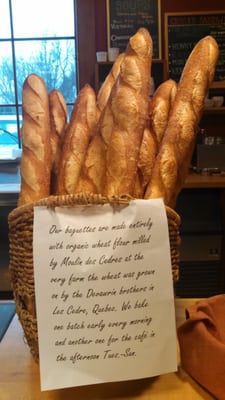 SOUPS
Our baguettes are made entirely
with organic wheat flour milled
by Moulin des Cedres at the
very farm the wheat was grown
on by the Devaurin brothers in
Les Cedre, Quebec. We bake
one batch early every morning
and another one for the café in
the afternoon Tues.-Sun.